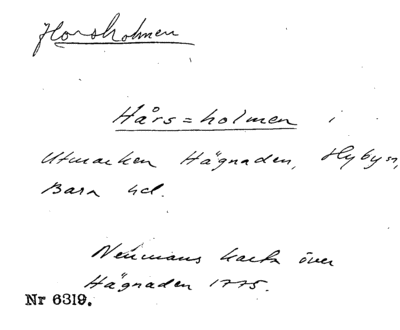 Horsholmen
Hårs=holmen i
Utmarken Hägnaden, Hyby sn,
Bara hd.
Neümans karta över
Hägnaden 1775.
Nr 6319.